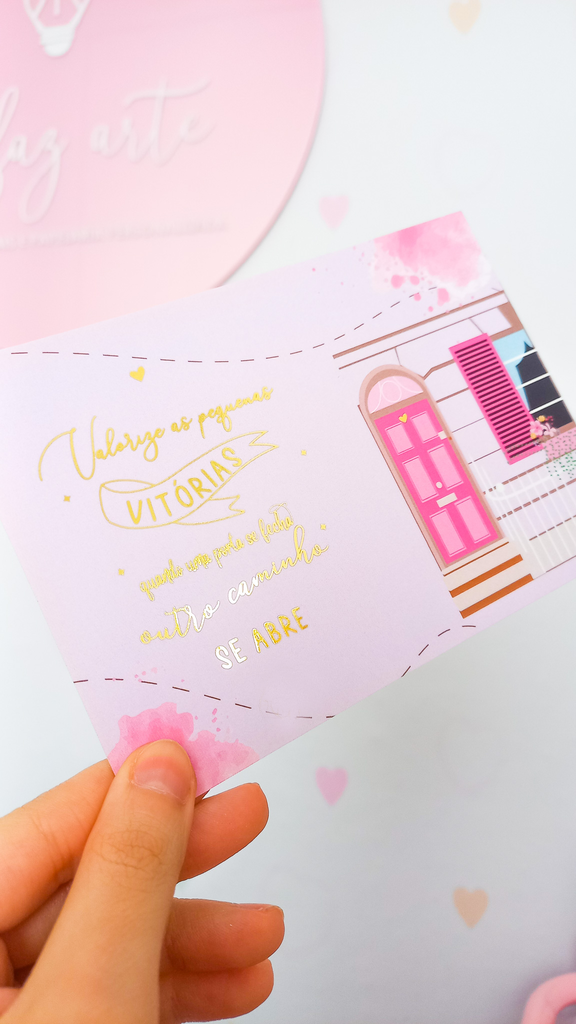 faz arte
Valorize as pequenas
VITÓRIAS
quando uma porta se fecha
outro caminho
SE ABRE